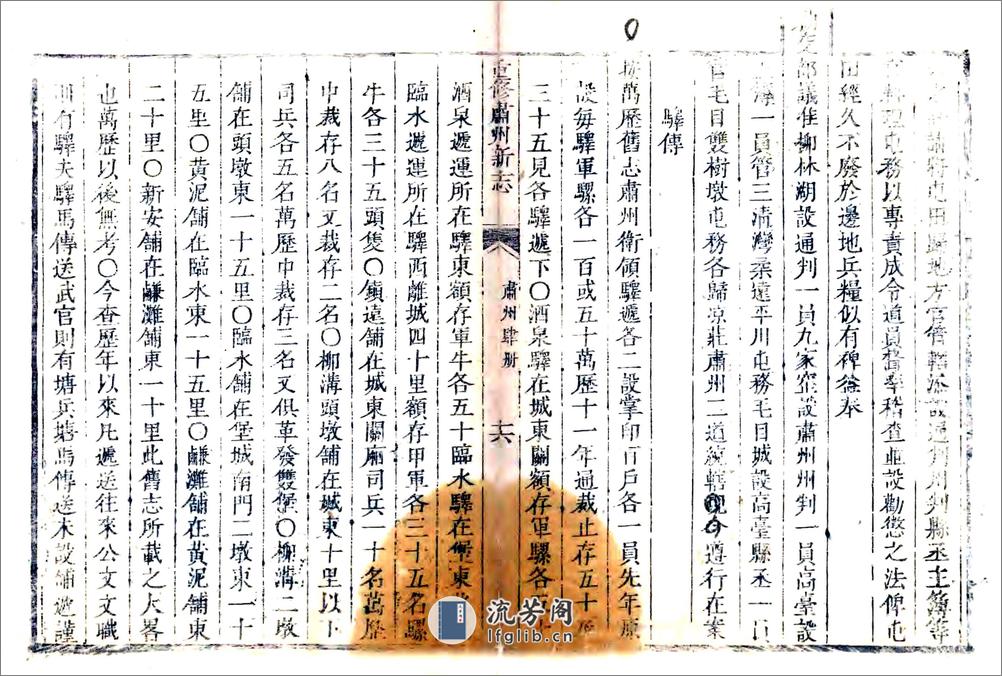 將屯田縣地方官管轄添設通判州判縣丞主簿等
理屯務以專責成令道員督率稽查並設勸懲之法俾屯
田經久不廢於邊地兵糧似有裨益奉
部議准柳林湖設通判一員九家窰設肅州州判一員高臺設
一員管三清灣柔遠平川屯務毛目城設高臺縣丞一員
管毛目雙樹墩屯務各歸凉莊肅州二道統轄現今遵行在案
驛傳
按萬歷舊志肅州衛領驛遞各二設掌印百戶各一員先年原
設每驛軍騾各一百或五十萬歷十一年通裁止存五十
三十五見各驛遞下〇酒泉驛在城東關額存軍騾各五十
酒泉遞運所在驛東額存軍牛各五十臨水驛在堡東
臨水遞運所在驛西離城四十里額存甲軍各三十五名騾
牛各三十五頭隻〇鎮遠舖在城東關廂司兵一十名萬歷
中裁存八名又裁存二名〇柳溝頭墩舖在城東十里以下
司兵各五名萬歷中裁存三名又俱革發雙堡〇柳溝二墩
舖在頭墩東一十五里〇臨水舖在堡城南門二墩東一十
五里〇黃泥舖在臨水東一十五里〇鹻灘舖在黃泥舖東
二十里〇新安舖在鹻灘舖東一十里此舊志所載之大畧
也萬歷以後無考〇今查歷年以來凡遞送往來公文文職
則有驛夫驛馬傳送武官則有塘兵塘馬傳送未設舖遞謹
重修肅州新志
肅州肆册
六
流芳阁
lfglib.cn